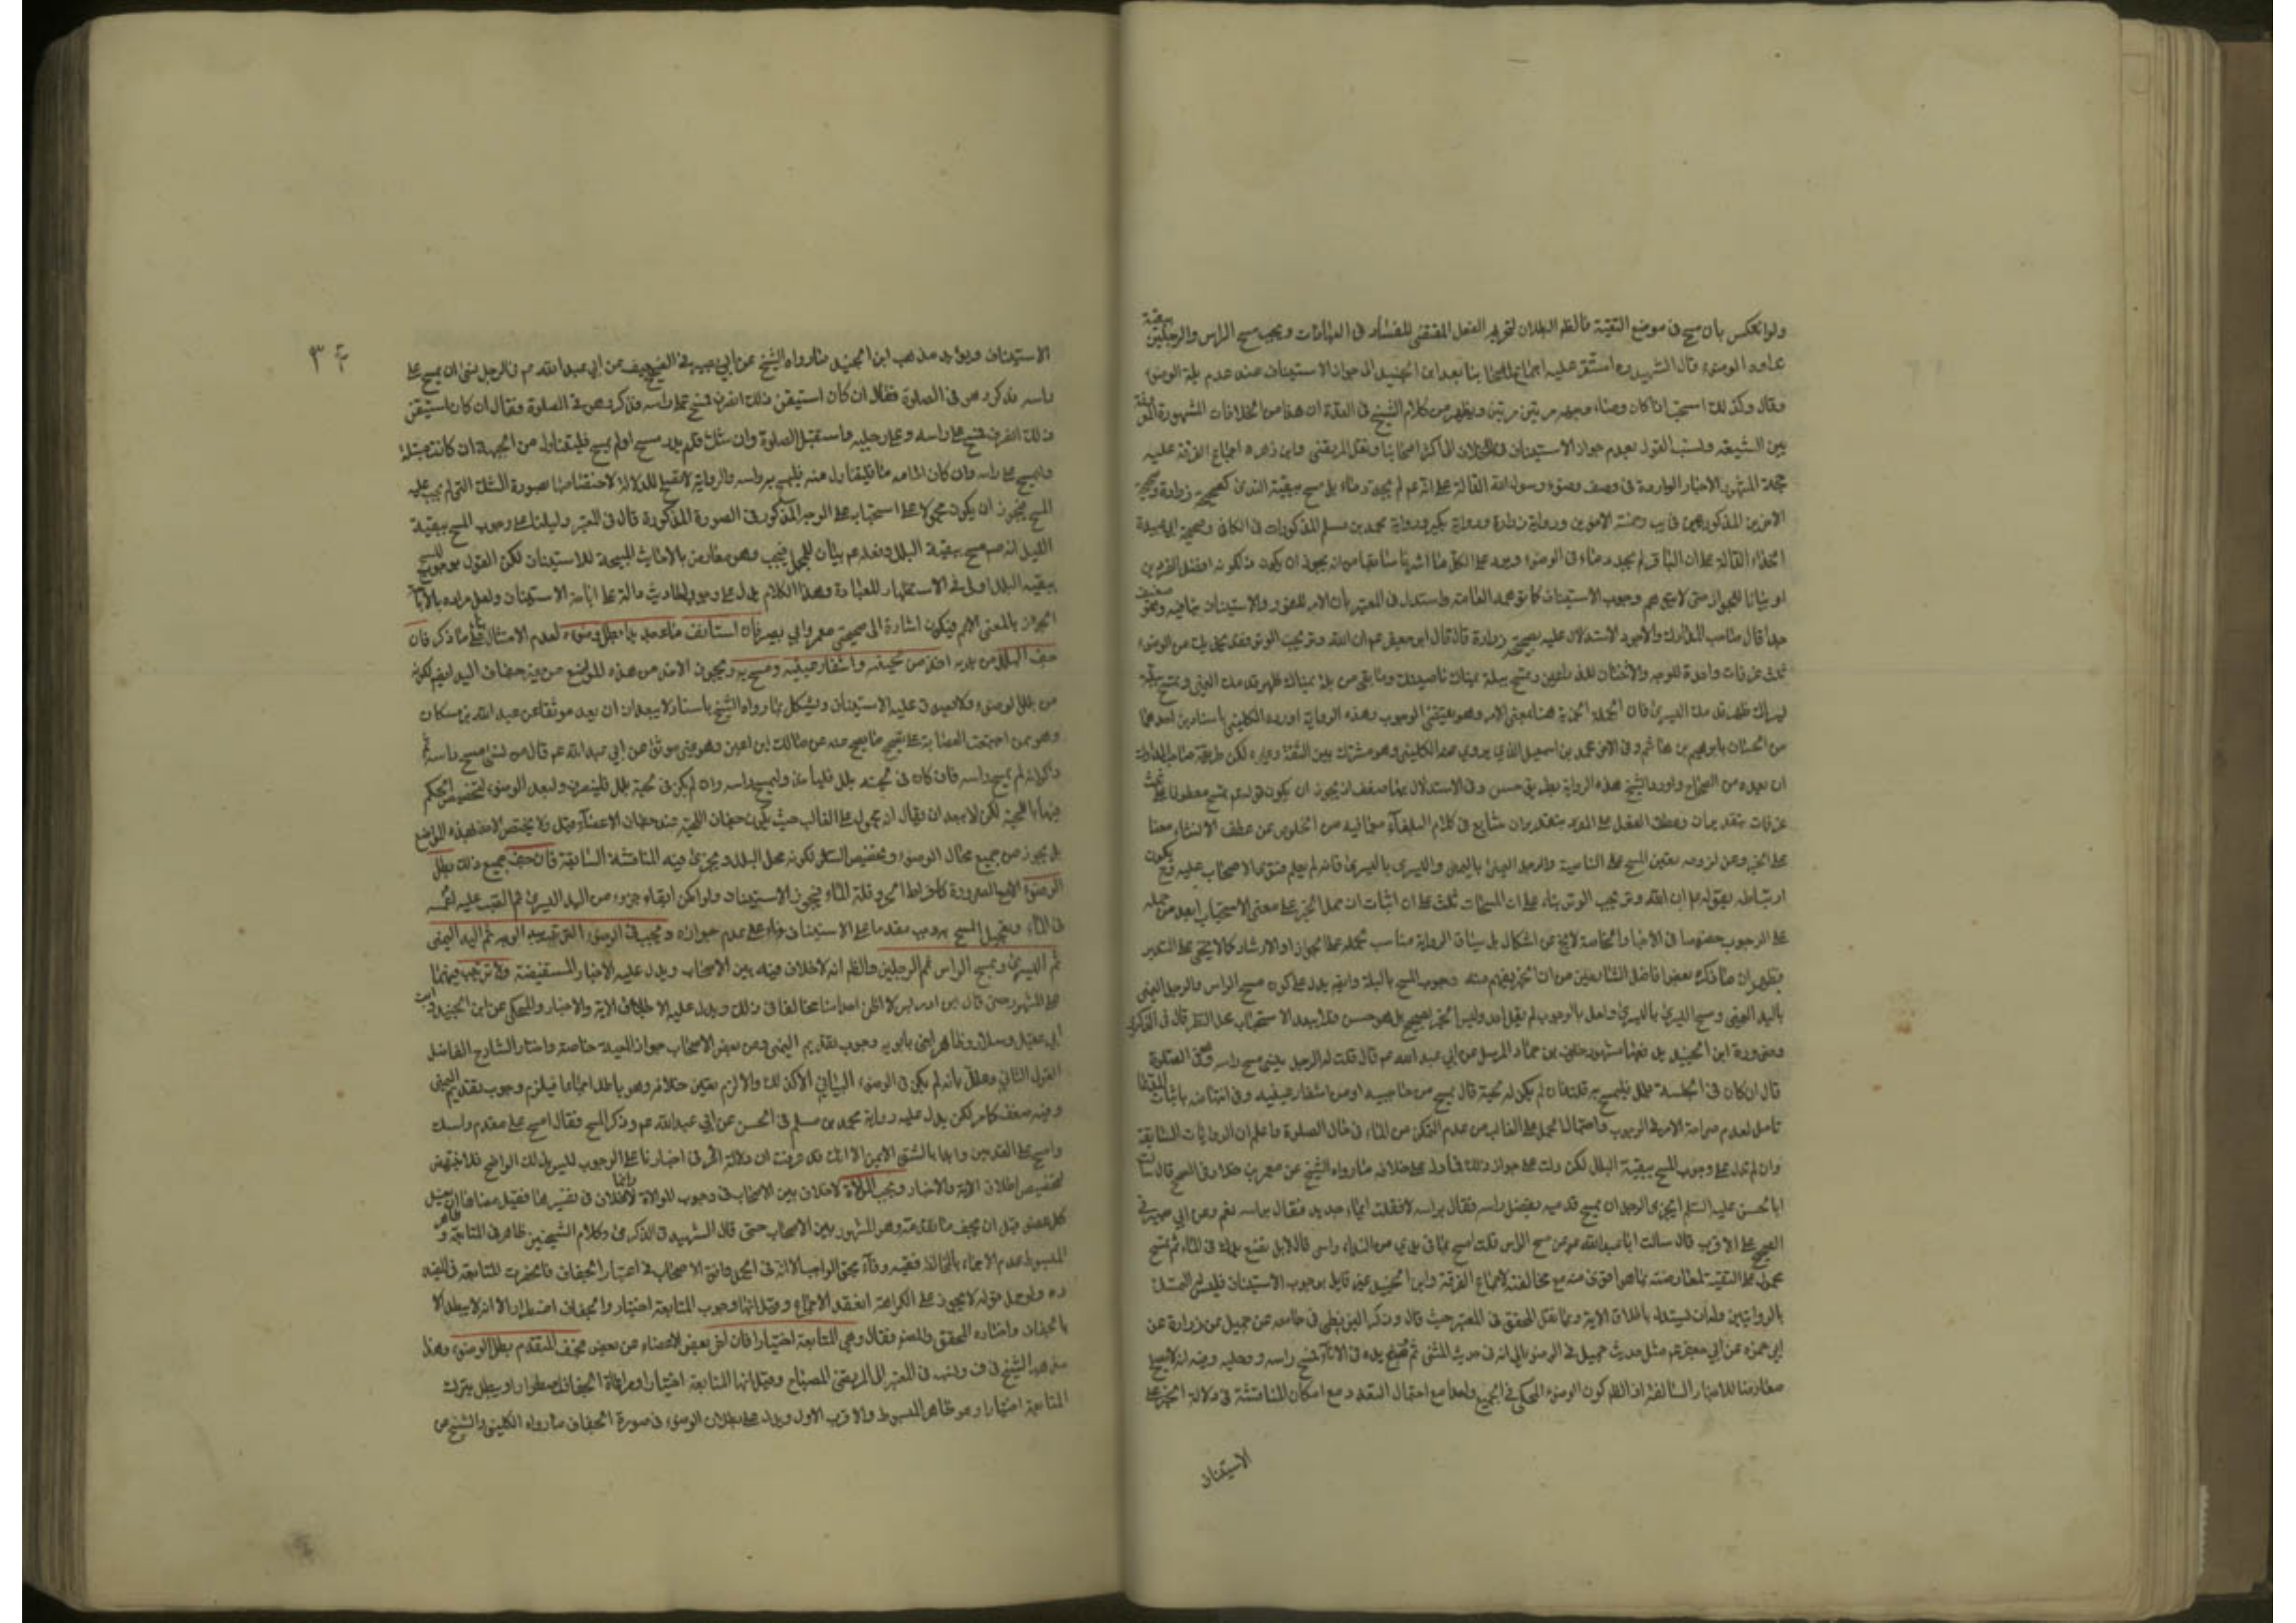 ولو انعكس بأن مسح فى موضع التقية فالظ البطلان لتحريم الفعل المقتضى للفساد فى العبادات ويجب مسح الراس والرجلين ببقية
نداوة الوضوء قال الشهيد ره استقر عليه اجماع اصحابنا بعد ابن الجنيد الى جواز الاستيناف عند عدم بلة الوضوء
وقال وكذلك استحب اذا كان وضاء وجهه مرتين مرتين ويظهر من كلام الشيخ فى العدة ان هذا من الخلافات المشهورة
بين الشيعة ونسب القول بعدم جواز الاستيناف فى الخلاف الى اكثر اصحابنا ونقل المرتضى وابن زهره اجماع الفرقة عليه
حجة المشهور الاخبار الواردة فى وصف وضوء رسول الله الدالة على انه عم لم يجدد ماء بل مسح ببقية الندى كصحيحة زرارة وصحيحة
الاخوين المذكورتين فى يب وحسنة الاخوين ورواية زرارة ورواية بكير ورواية محمد بن مسلم المذكورات فى الكافى وصحيحة ابى عبيدة
الحذاء الدالة على ان الباقر لم يجدد ماء فى الوضوء ويرد على الكل ما اشرنا سابقا من انه يجوز ان يكون ذلك لكونه افضل الفردين
او بيانا للجواز حتى لا يتوهم وجوب الاستيناف كما توهمه العامة واستدل فى المعتبر بأن الامر للفور والاستيناف ينافيه وهو ضعيف
جدا قال صاحب المدارك والاجود الاستدلال عليه بصحيحة زرارة قال قال ابو جعفر عم ان الله وتر يحب الوتر فقد يجزيك من الوضوء
ثلث غرفات واحدة للوجه واثنتان للذراعين وتمسح ببلة يمناك ناصيتك وما بقى من بلة يمناك ظهر قدمك اليمنى وتمسح ببلة
يسراك ظهر قدمك اليسرى فان الجملة الخبرية هنا بمعنى الامر وهو يقتضى الوجوب وهذه الرواية اوردها الكلينى باسنادين احدهما
من الحسان بابرهيم بن هاشم وفى الاخر محمد بن اسمعيل الذى يروى عنه الكلينى وهو مشترك بين الثقة وغيره لكن طريقة صاحب المدارك
ان يعده من الصحاح واورد الشيخ هذه الرواية بطريق حسن وفى الاستدلال بها ضعف اذ يجوز ان يكون قوله عم تمسح معطوفا على ثلث
غرفات بتقدير ان وعطف الفعل على المصدر بتقدير ان شايع فى كلام البلغاء مع ما فيه من الخلوص عن عطف الانشاء معنا
على الخبر وعن لزوم تعيين المسح على الناصية والرجل اليمنى باليمنى واليسرى باليسرى فانه لم يعلم متفق من الاصحاب عليه فح يكون
ارتباطه بقوله عم ان الله وتر يحب الوتر بناء على ان المسحات ثلث على ان اثبات ان حمل الخبر على معنى الاستحباب ابعد من حمله
على الوجوب خصوصا فى الاخبار الخاصة لا يخ عن اشكال بل سياق الرواية مناسب لحمله على الجواز او الارشاد كما لا يخفى على التدبر
فظهر ان ما ذكره بعض افاضل الشارحين من ان الخبر يفهم منه وجوب المسح بالبلة وايض يدل على كون مسح الراس والرجل اليمنى
باليد اليمنى ومسح اليسرى باليسرى ولعل بالوجوب لم يقل احد وليس الخبر بصحيح بل هو حسن فلا يبعد الاستحباب محل النظر قال فى الذكرى
وحجة ابن الجنيد بل نفيها مشهور خلف بن حماد المرسل عن ابى عبد الله عم قال قلت له الرجل ينسى مسح راسه وهو فى الصلوة
قال ان كان فى لحيته بلل فليمسح به قلت فان لم يكن له لحية قال يمسح من حاجبيه او من اشفار عينيه وفى انتهاضه باثبات المدعا
تامل لعدم صراحة الامر فى الوجوب واحتمال الحمل على الغالب من عدم التمكن من الماء فى حال الصلوة واعلم ان الروايات السابقة
وان لم تدل على وجوب المسح ببقية البلل لكن دلت على جواز ذلك فما دل على خلافه مما رواه الشيخ عن معمر بن خلاد فى الصحيح قال سالت
ابا الحسن عليه السلم ايجزى الرجل ان يمسح قدميه بفضل راسه فقال براسه لا فقلت ابماء جديد فقال براسه نعم وعن ابى بصير فى
الصحيح على الاقرب قال سالت ابا عبد الله عم عن مسح الراس قلت امسح بما فى يدى من الندا راسى قال لا بل تضع يدك فى الماء ثم تمسح
محمول على التقية لمعارضته بما هو اقوى منه مع مخالفته لاجماع الفرقة وابن الجنيد غير قايل بوجوب الاستيناف فليس له التمسك
بالروايتين ولمن ان يستدل باطلاق الاية وبما نقل المحقق فى المعتبر حيث قال وذكر البزنطى فى جامعه عن جميل عن زرارة عن
ابى جعفر عم مثل حديث جميل فى الوضوء الا انه فى حديث المثنى ثم وضع يده فى الاناء فمسح راسه ورجليه وفيه انه لا يصلح
معارضا للاخبار السالفة اذ الظ كون الوضوء المحكى فى الجميع واحدا مع احتمال التعدد مع امكان المناقشة فى دلالة الخبر على
الاستيناف
الاستيناف ويؤيد مذهب ابن الجنيد ما رواه الشيخ عن ابى بصير فى الضعيف عن ابى عبد الله عم فى الرجل نسى ان يمسح على
راسه فذكر وهو فى الصلوة فقال ان كان استيقن ذلك انصرف فمسح على راسه وذكر وهو فى الصلوة فقال ان كان استيقن
ذلك انصرف فمسح على راسه وعلى رجليه واستقبل الصلوة وان شك فلم يدر مسح او لم يمسح فليتناول من لحيته ان كانت مبتلة
وليمسح على راسه وان كان امامه ماء فليتناول منه فليمسح به راسه والرواية لا تصلح للدلالة لاختصاصها بصورة الشك التى لم يجب عليه
المسح فيجوز ان يكون محمولا على استحبابه على الوجه المذكور فى الصورة المذكورة قال فى المعتبر ودليلنا على وجوب المسح ببقية
البلل انه عم مسح ببقية البلل وفعله عم بيان للمجمل فيجب وهو معارض بالاحاديث المبيحة للاستيناف لكن القول بوجوب المسح
ببقية البلل اولى فى الاستظهار للعبادة وهذا الكلام يدل على وجود احاديث دالة على اباحة الاستيناف ولعل مراده بالاباحة
الجواز بالمعنى الاعم فيكون اشارة الى صحيحتى معمر وابى بصير فان استانف ماء جديدا بطل وضوءه لعدم الامتثال على ما ذكر فان
جف البلل من يديه اخذ من لحيته واشفار عينيه ومسح به ويجوز الاخذ من هذه المواضع من دون جفاف اليد ايض لكونه
من بلل الوضوء فلا يصدق عليه الاستيناف ويشكل بما رواه الشيخ باسناد لا يبعد ان يعد موثقا عن عبد الله بن مسكان
وهو ممن اجمعت العصابة على تصحيح ما يصح عنه عن مالك ابن اعين وهو غير موثق عن ابى عبد الله عم قال من نسى مسح راسه ثم
ذكر انه لم يمسح راسه فان كان فى لحيته بلل فلياخذ منه وليمسح راسه وان لم يكن فى لحيته بلل فلينصرف وليعد الوضوء لتخصيص الحكم
فيها باللحية لكن لا يبعد ان يقال انه محمول على الغالب حيث يكون جفاف اللحية عند جفاف الاعضاء قيل ولا يختص الاخذ بهذه المواضع
بل يجوز من جميع محال الوضوء وتخصيص الشعر لكونه محل البلل ويجرى فيه المناقشة السابقة فان جف جميع ذلك بطل
الوضوء الا مع الضرورة كافراط الحر وقلة الماء فيجوز الاستيناف ولو امكن ابقاء جزء من اليد اليسرى ثم الصب عليه او غمسه
فى الماء وتعجيل المسح به وجب مقدما على الاستيناف بناء على عدم جوازه ويجب فى الوضوء الترتيب يبدا بالوجه ثم اليد اليمنى
ثم اليسرى ويمسح الراس ثم الرجلين والظ انه لا خلاف فيه بين الاصحاب ويدل عليه الاخبار المستفيضة ولا ترتيب فيهما
على المشهور حتى قال ابن ادريس لا اظن احدا منا مخالفا فى ذلك ويدل عليه اطلاق الاية والاخبار والمحكى عن ابن الجنيد وابن
ابى عقيل وسلار وظاهر ابنى بابويه وجوب تقديم اليمنى وعن بعض الاصحاب جواز المعية خاصة واختار الشارح الفاضل
القول الثانى وعلل بانه لم يكن فى الوضوء البيانى الا كذلك والا لزم تعيين خلافه وهو باطل اجماعا فيلزم وجوب تقديم اليمنى
وفيه ضعف كما مر لكن يدل عليه رواية محمد بن مسلم فى الحسن عن ابى عبد الله عم وذكر المسح فقال امسح على مقدم راسك
وامسح على القدمين وابدا بالشق الايمن الا انك قد عرفت ان دلالة الامر فى اخبارنا على الوجوب ليس بذلك الواضح فلا ينتهض
لتخصيص اطلاق الاية والاخبار ويجب الموالاة لا خلاف بين الاصحاب فى وجوب الموالاة وانما الخلاف فى تفسيرها فقيل معناها ان يغسل
كل عضو قبل ان يجف ما تقدمه وهو المشهور بين الاصحاب حتى قال الشهيد فى الذكرى وكلام الشيخين ظاهر فى المتابعة وظاهر
المبسوط عدم الاجزاء بالمخالفة
ره ولو حمل قوله لا يجوز على الكراهة انعقد الاجماع وقيل انها وجوب المتابعة اختيارا والجفاف اضطرارا الا انه لا يبطل الا
بالجفاف واختاره المحقق والمصنف وقال وهى المتابعة اختيارا فان اخر بعض الاعضاء عن بعض فجف المتقدم بطل الوضوء وهذا
مذهب الشيخ فى ف ونسب فى المعتبر الى المرتضى فى المصباح وقيل انها المتابعة اختيارا ومراعاة الجفاف اضطرارا ويبطل بترك
المتابعة اختيارا وهو ظاهر المبسوط والاقرب الاول ويدل على بطلان الوضوء فى صورة الجفاف ما رواه الكلينى والشيخ عن